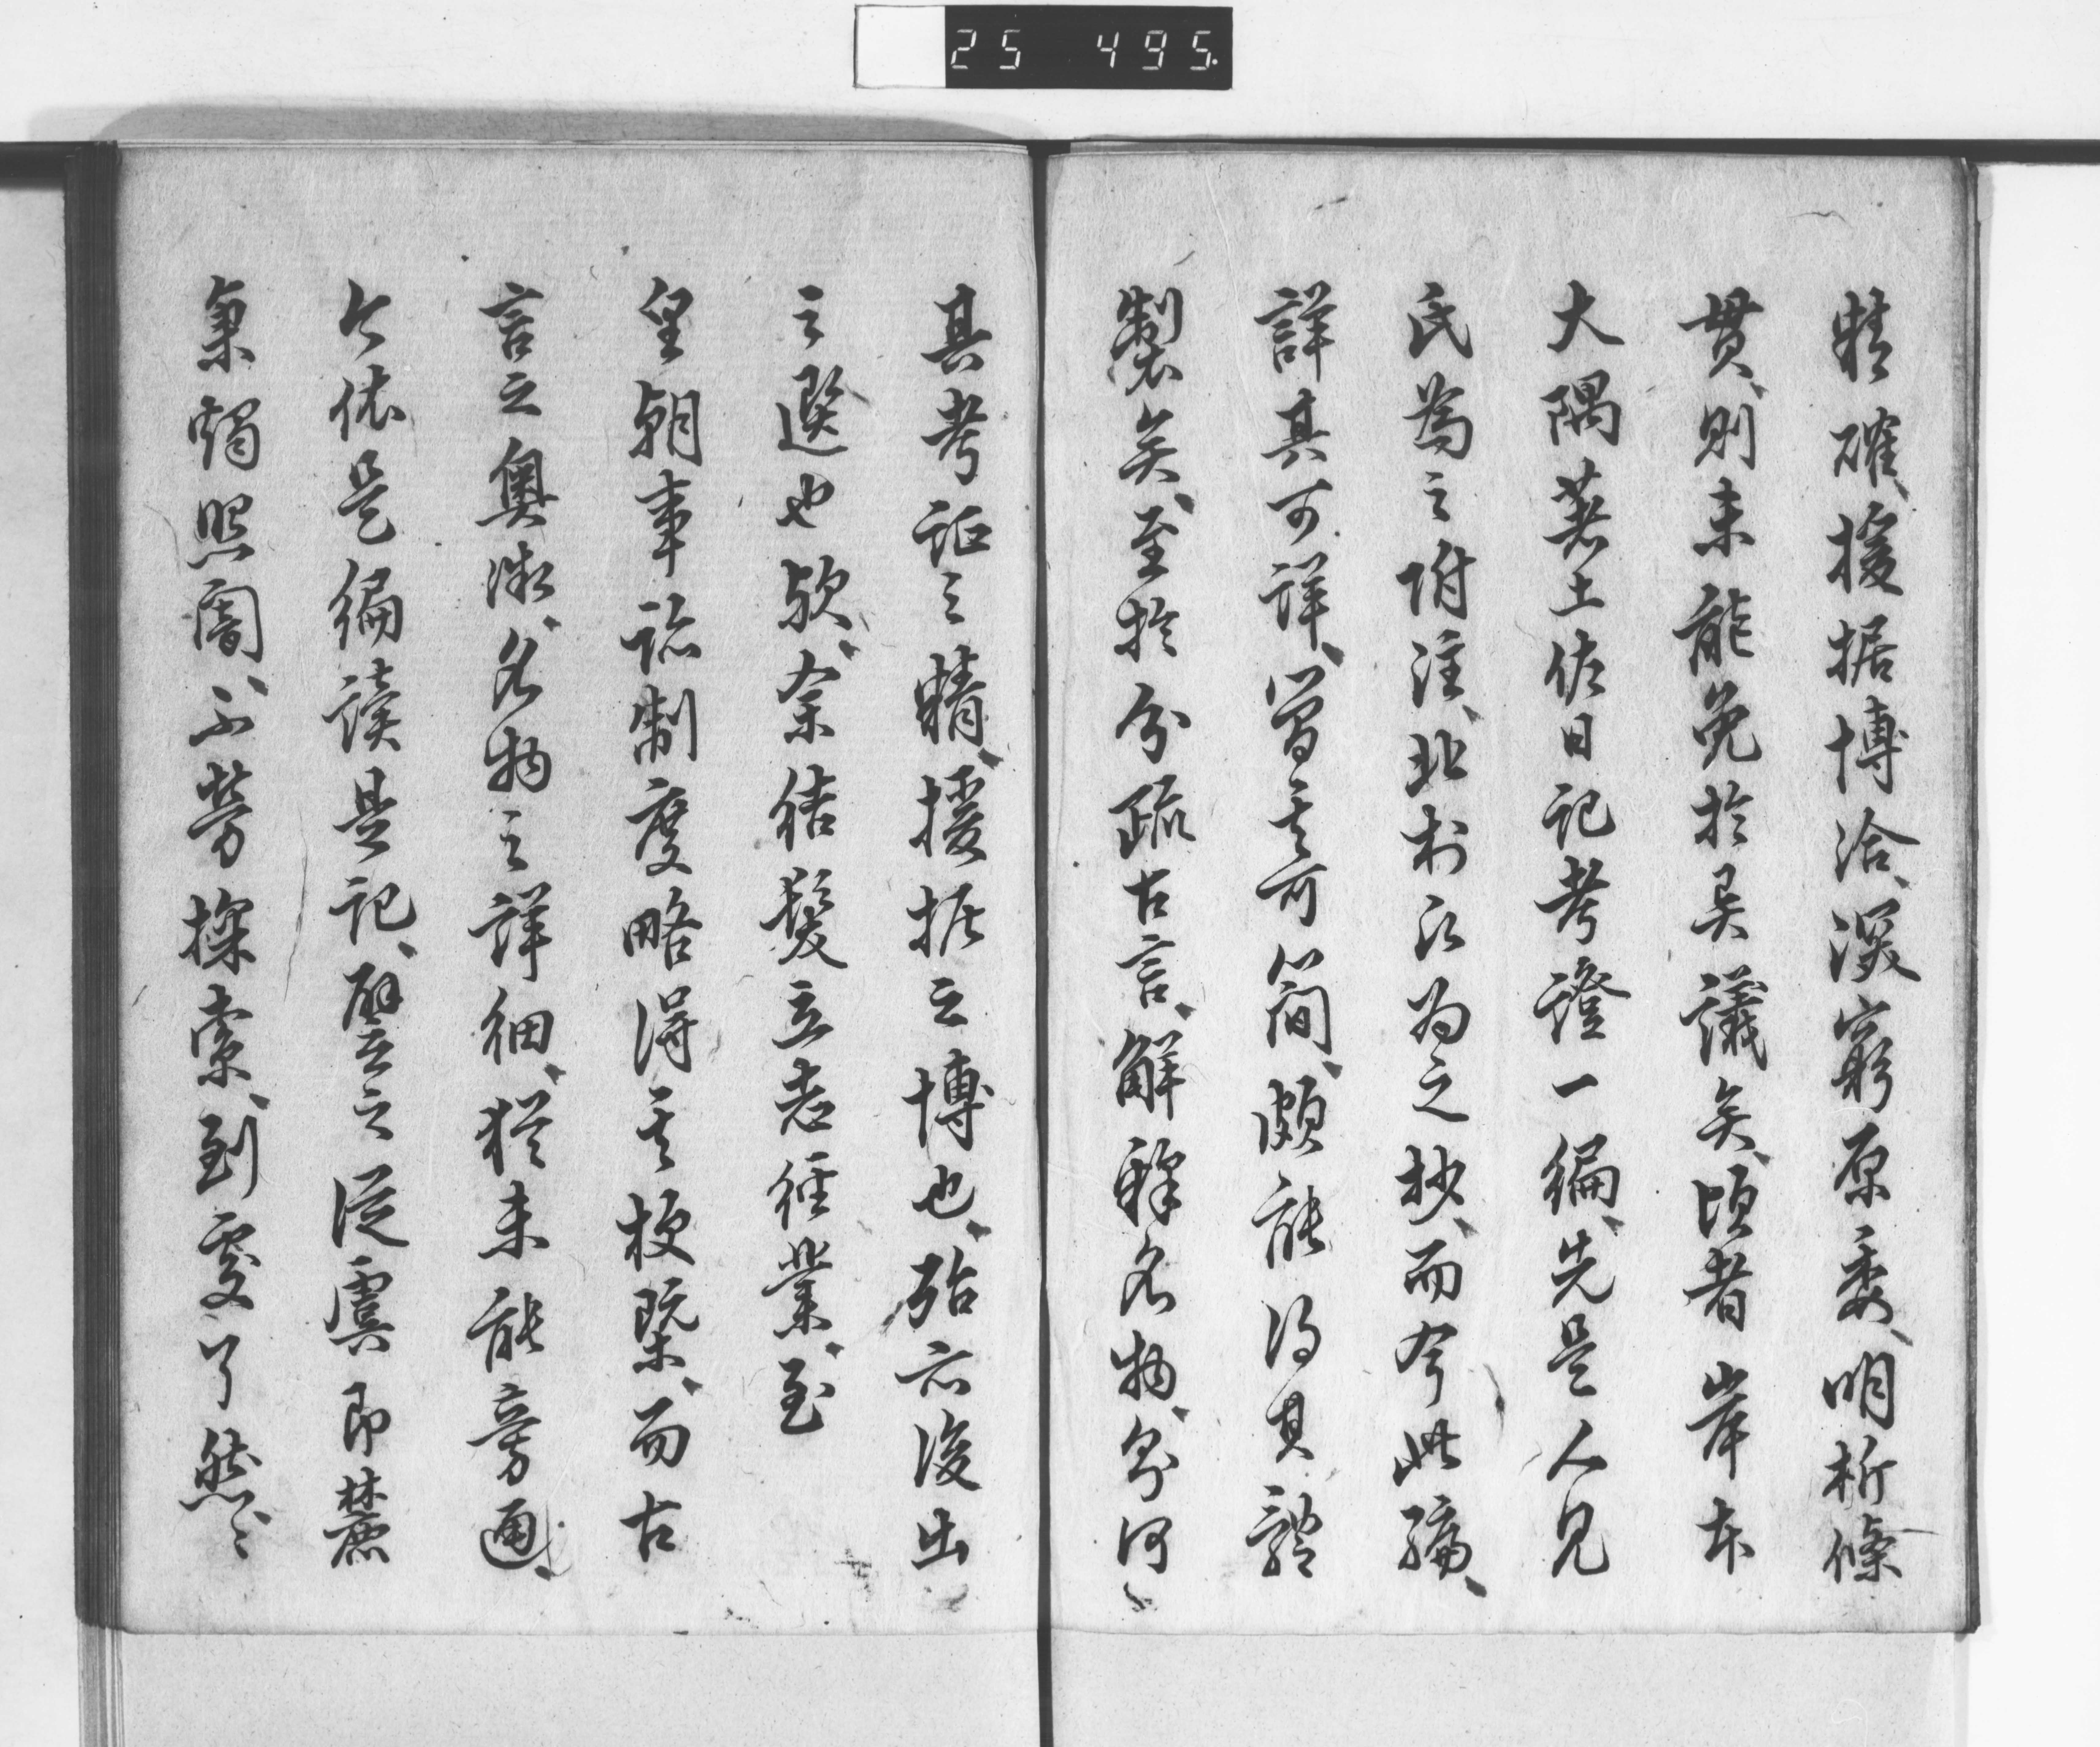 25 495.
精確、援据博洽、深窮原委、明析條
貫、則未能免於吴議矣、頃者岸本
大隅著土佐日記考證一編、先是人見
氏為之附注、北村氏為之抄、而今此編、
詳其可詳、簡其可簡、頗能得其體
製矣、至於分疏古言、解釋名物、
其考証之精、援据之博也、殆亦後出
之選也歟、余結髮立志經業、至
皇朝事跡制度略得其梗槩、而古
言之奧微、名物之詳細、猶未能旁通、
今依是編讀是記、譬之從虞即麓
秉燭照闇、不勞探索、到處了然、